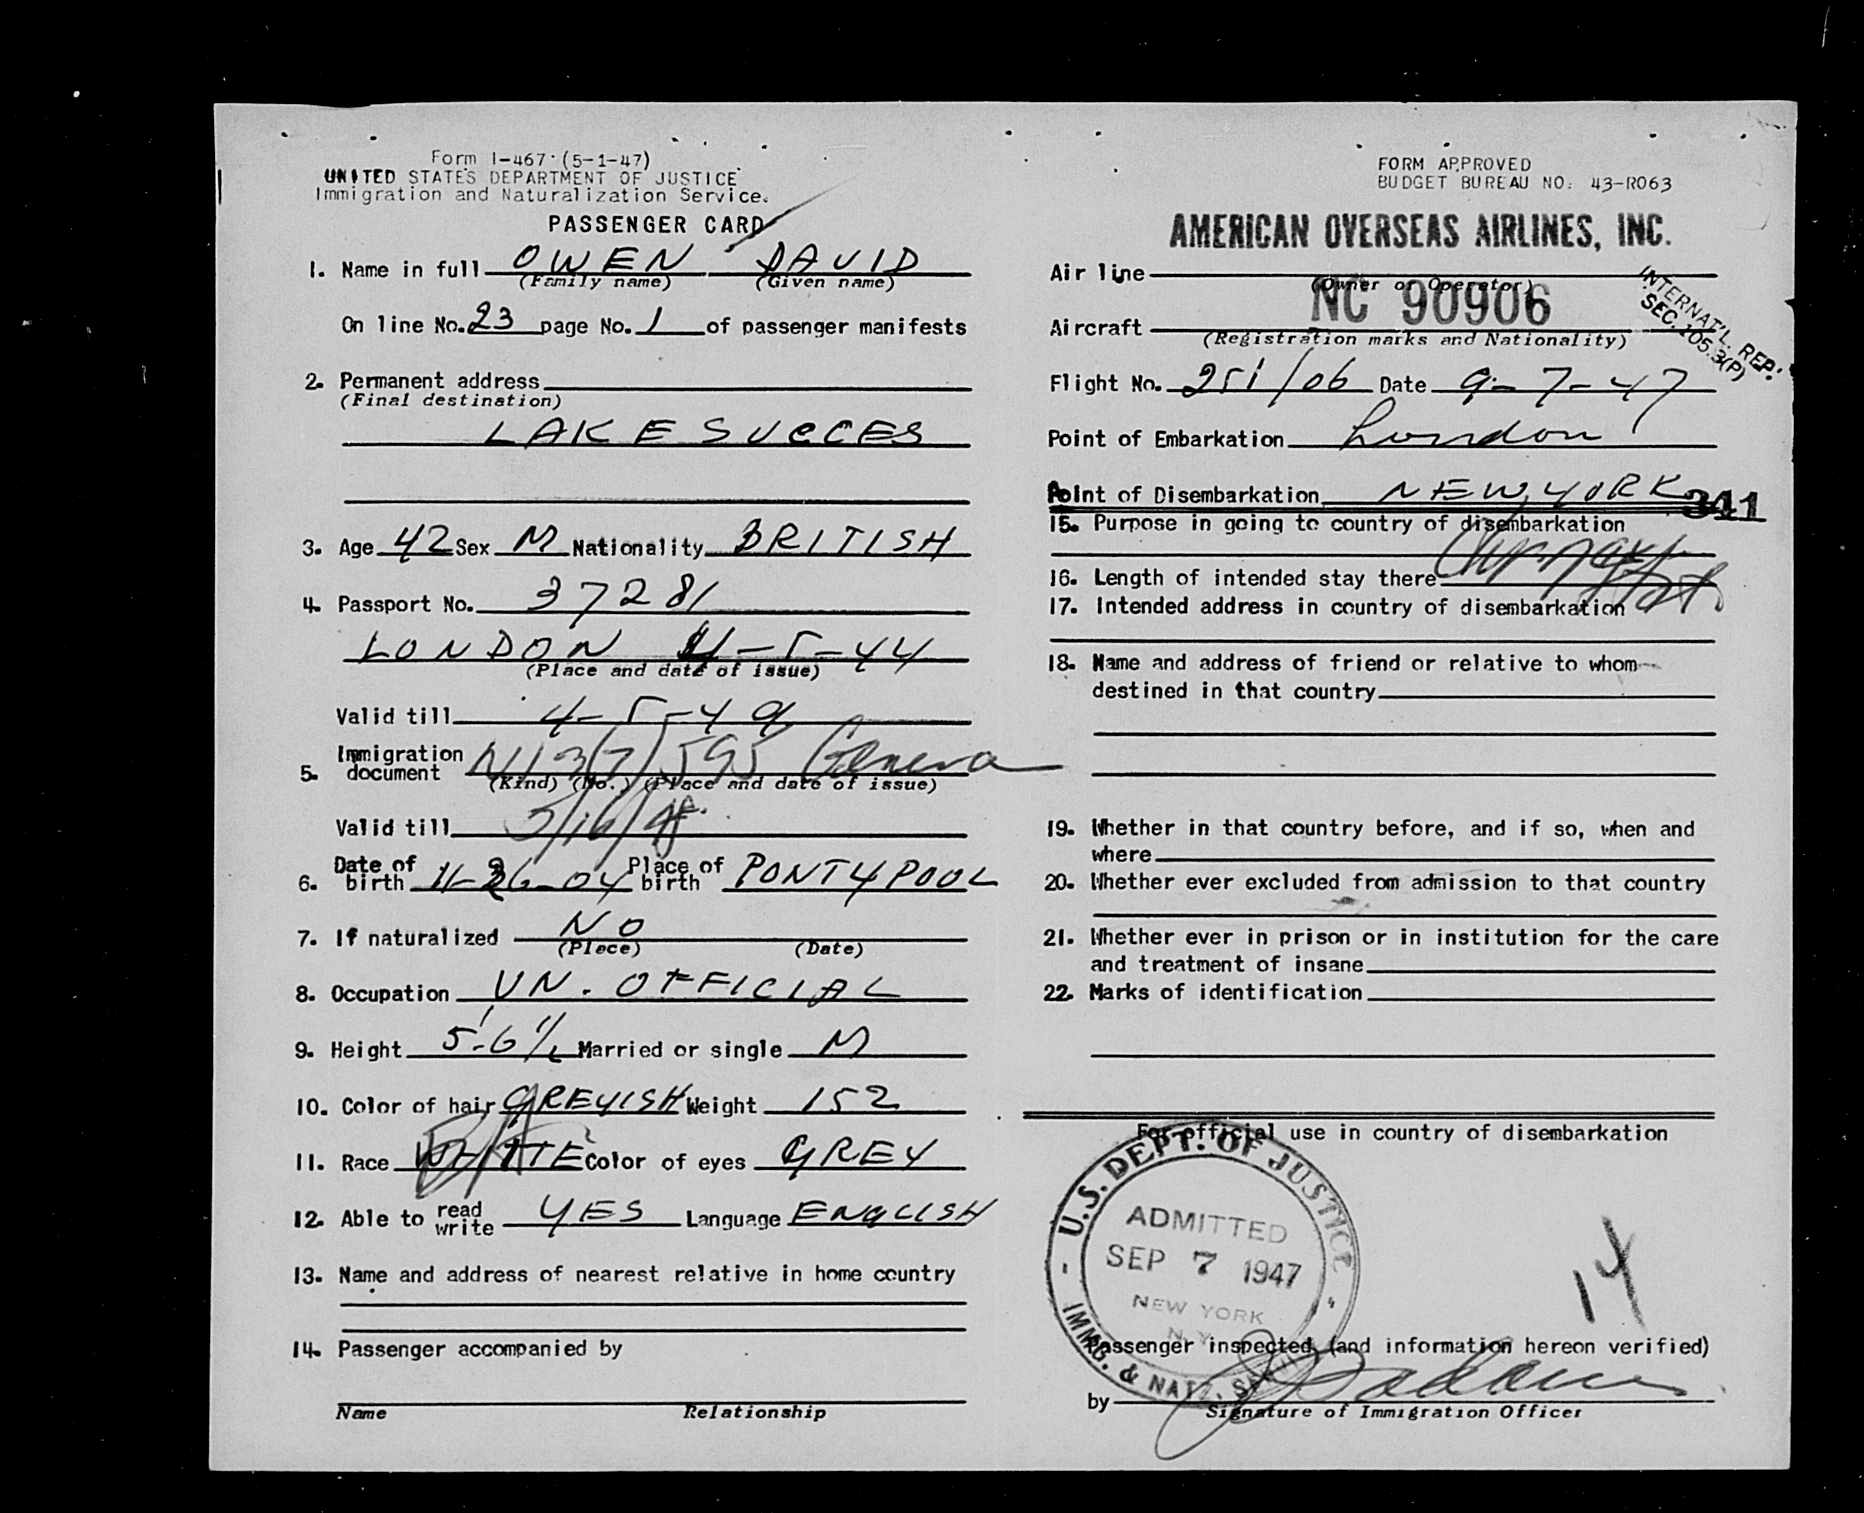 Form I-467 (5-1-47)
UNITED STATES DEPARTMENT OF JUSTICE
Immigration and Naturalization Service.
PASSENGER CARD
1. Name in full OWEN DAVID
(Family name) (Given name)
On line No. 23 page No. 1 of passenger manifests
2. Permanent address
(Final destination)
LAKE SUCCES
3. Age 42 Sex M Nationality BRITISH
4. Passport No. 37281
LONDON 4-5-44
(Place and date of issue)
Valid till 4-5-49
5. Immigration document Geneva
(Kind) (No.) (Place and date of issue)
Valid till
6. Date of birth 11-26-04 Place of birth PONTYPOOL
7. If naturalized NO
(Place) (Date)
8. Occupation UN. OFFICIAL
9. Height 5'-6 1/2 Married or single M
10. Color of hair GREYISH Weight 152
11. Race WHITE Color of eyes GREY
12. Able to read write YES Language ENGLISH
13. Name and address of nearest relative in home country
14. Passenger accompanied by
Name Relationship
FORM APPROVED
BUDGET BUREAU NO. 43-R063
AMERICAN OVERSEAS AIRLINES, INC.
Air line
(Owner or Operator)
NC 90906
Aircraft
(Registration marks and Nationality)
INTERNAT'L. REP.
SEC. 105.3(P)
Flight No. 251/06 Date 9-7-47
Point of Embarkation London
Point of Disembarkation NEW YORK
341
15. Purpose in going to country of disembarkation
16. Length of intended stay there
17. Intended address in country of disembarkation
18. Name and address of friend or relative to whom
destined in that country
19. Whether in that country before, and if so, when and
where
20. Whether ever excluded from admission to that country
21. Whether ever in prison or in institution for the care
and treatment of insane
22. Marks of identification
For official use in country of disembarkation
U.S. DEPT. OF JUSTICE
ADMITTED
SEP 7 1947
NEW YORK
N.Y.
IMMG. & NATZ. SERVICE
14
Passenger inspected (and information hereon verified)
by
Signature of Immigration Officer